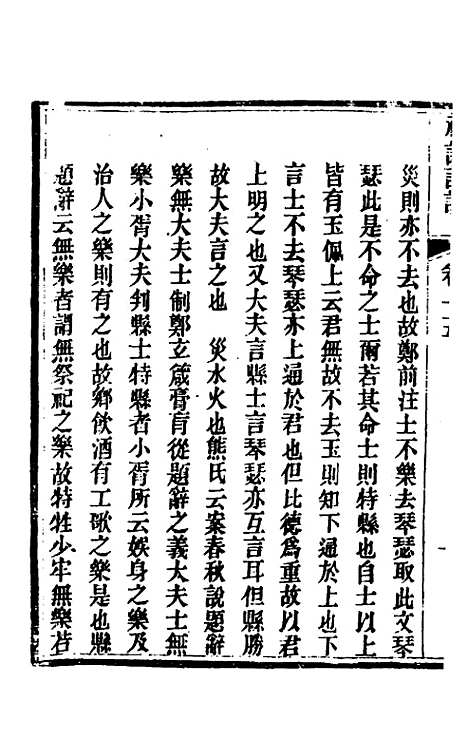 災則亦不去也故鄭前注士不樂去琴瑟取此文琴
瑟此是不命之士爾若其命士則特縣也自士以上
皆有玉佩上云君無故不去玉則知下通於上也下
言士不去琴瑟亦上通於君也但比德爲重故以君
上明之也又大夫言縣士言琴瑟亦互言耳但縣勝
故大夫言之也　災水火也熊氏云案春秋說題辭
樂無大夫士制鄭玄箴膏肓從題辭之義大夫士無
樂小胥大夫判縣士特縣者小胥所云娛身之樂及
治人之樂則有之也故鄉飲酒有工歌之樂是也縣
題辭云無樂者謂無祭祀之樂故特牲少牢無樂若